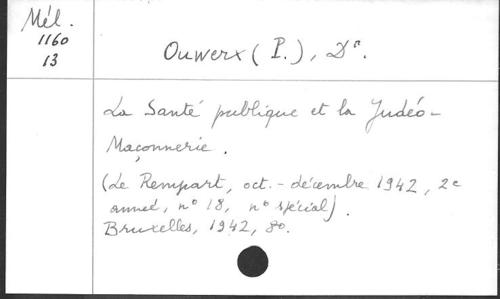 Mél.
1160
13
Ouwerx (P.), Dr.
La Santé publique et la Judéo-
Maçonnerie.
(Le Rempart, oct.-décembre 1942, 2e
année, n° 18, n° spécial).
Bruxelles, 1942, 8o.